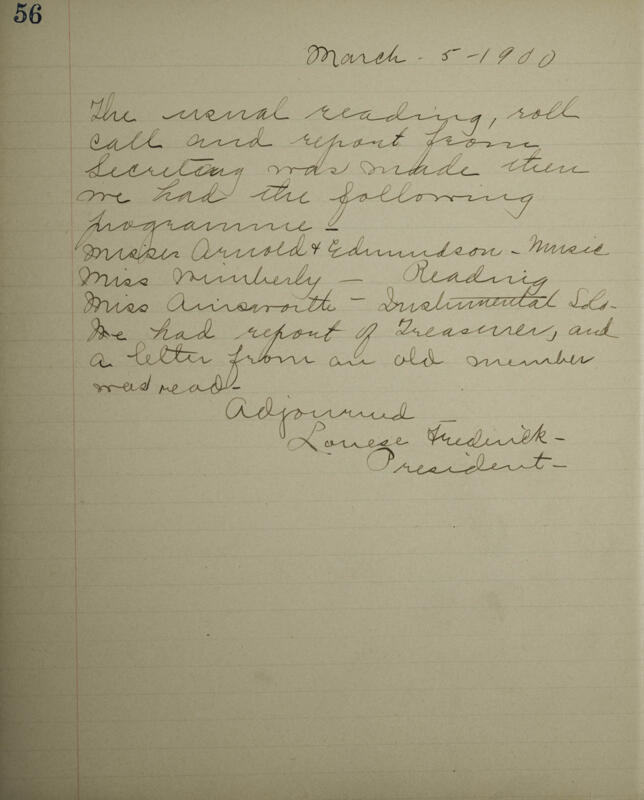 56
March - 5 - 1900
The usual reading, roll
call and report from
Secretary was made then
we had the following
programme -
Misses Arnold & Edmundson - Music
Miss Wimberly - Reading
Miss Ainsworth - Instrumental Solo-
We had report of Treasurer, and
a letter from an old member
was read-
Adjourned
Louese Frederick-
President-